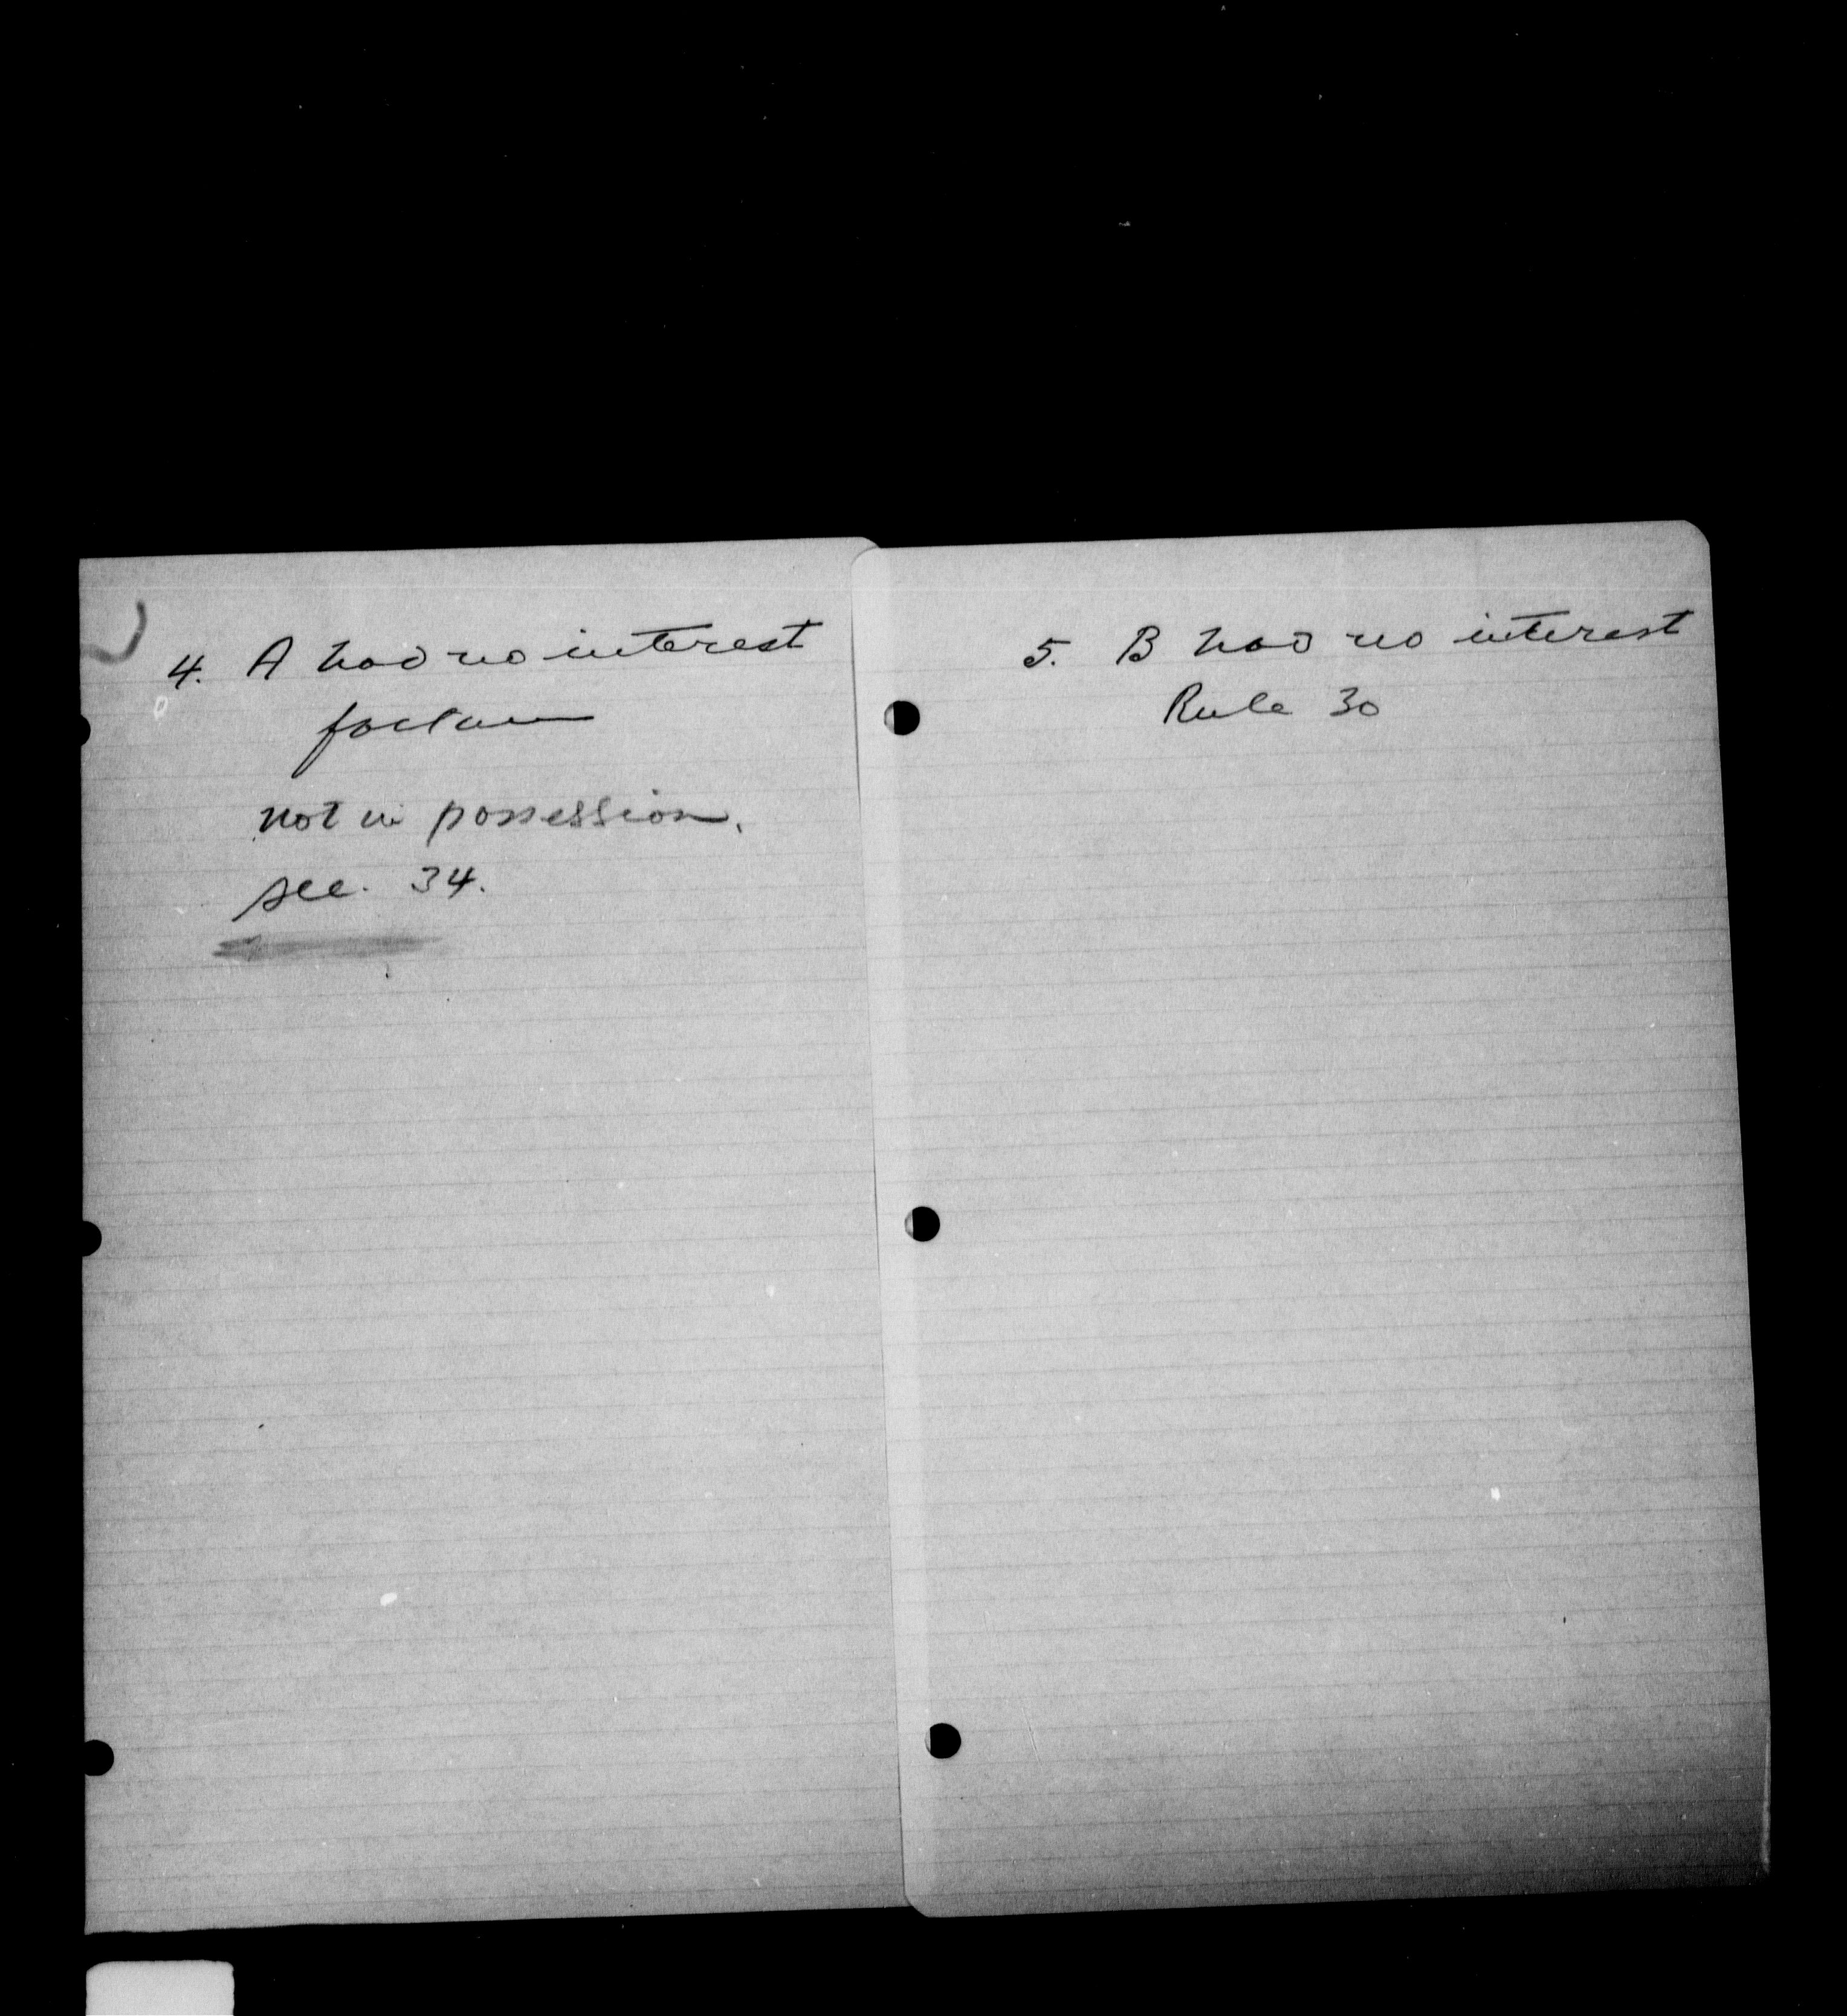 4. A had no interest
factum
not in possession.
sec. 34.
5. B had no interest
Rule 30